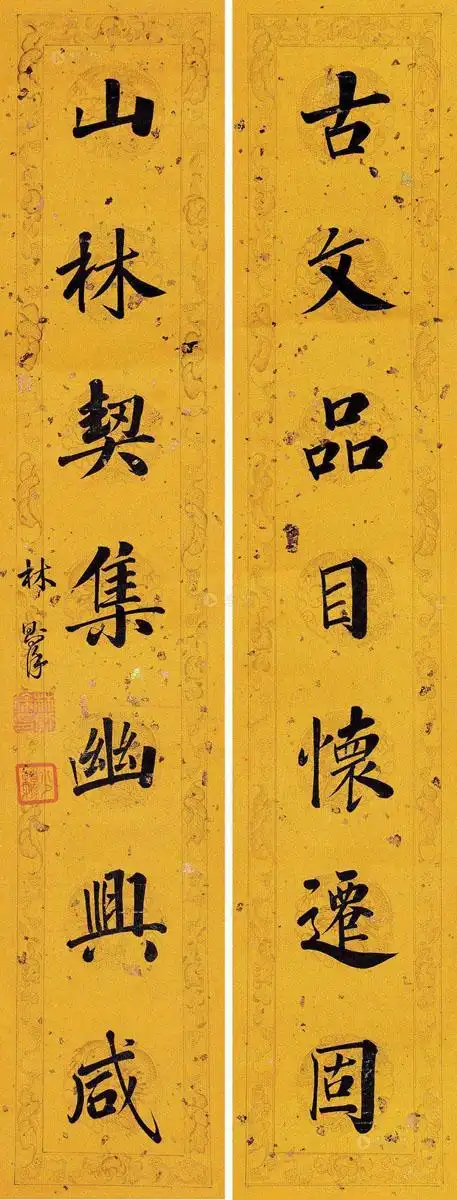 古文品目懷遷固
山林契集幽興咸
林